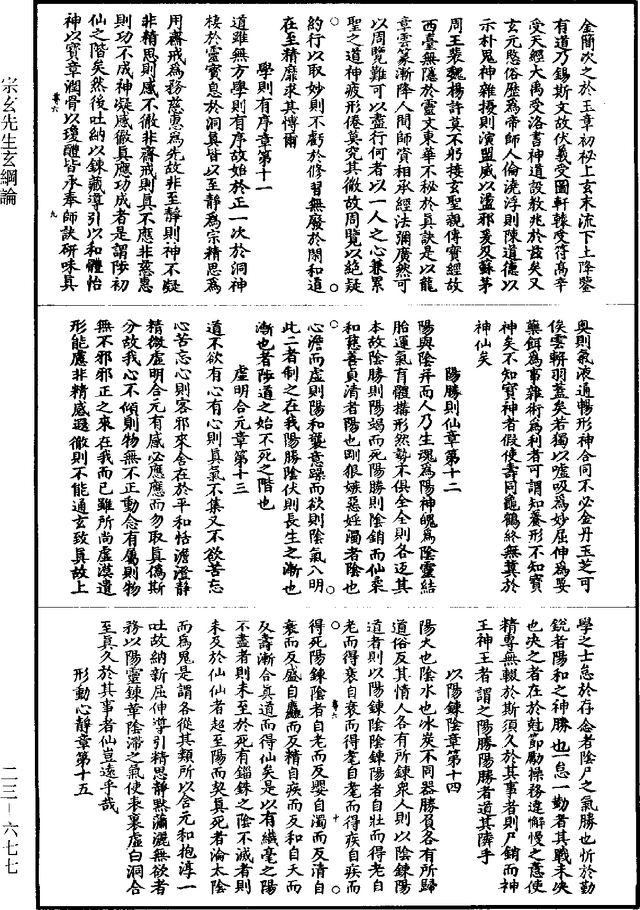 金簡次之於玉章初秘上玄末流下土降鑒
有道乃錫斯文故伏羲受圖軒轅受符高辛
受天經大禹受洛書神道設教兆於茲矣又
玄元愍俗歷為帝師人倫澆浮則陳道德以
示朴鬼神雜擾則演盟威以盪邪爰及蘇茅
周王裴魏楊許莫不躬接玄聖親傳寶經故
西臺無隱於靈文東華不秘於真訣是以龍
章雲篆漸降人間師資相承經法彌廣然可
以周覽難可以盡行何者以一人之心兼累
聖之道神疲形倦莫究其微故周覽以絕疑
約行以取妙則不虧於修習無廢於閑和道
在至精靡求其博爾
學則有序章第十一
道雖無方學則有序故始於正一次於洞神
棲於靈寶息於洞真皆以至靜為宗精思為
用齋戒為務慈惠為先故非至靜則神不凝
非精思則感不徹非齋戒則真不應非慈惠
則功不成神凝感徹真應功成者是謂陟初
仙之階矣然後吐納以鍊藏導引以和體怡
神以寶章潤骨以瓊醴皆承奉師訣研味真
奧則氣液通暢形神合同不必金丹玉芝可
俟雲輧羽蓋矣若獨以噓吸為妙屈伸為要
藥餌為事雜術為利者可謂知養形不知寶
神矣不知寶神者假使壽同龜鶴終無冀於
神仙矣
陽勝則仙章第十二
陽與陰并而人乃生魂為陽神魄為陰靈結
胎運氣育體搆形然勢不俱全全則各返其
本故陰勝則陽竭而死陽勝則陰銷而仙柔
和慈善貞清者陽也剛狠嫉惡婬濁者陰也
心澹而虛則陽和襲意躁而欲則陰氣入明
此二者制之在我陽勝陰伏則長生之漸也
漸也者陟道之始不死之階也
虛明合元章第十三
道不欲有心有心則真氣不集又不欲苦忘
心苦忘心則客邪來舍在於平和恬澹澄靜
精微虛明合元有感必應應而勿取真偽斯
分故我心不傾則物無不正動念有屬則物
無不邪邪正之來在我而已雖所尚虛漠遺
形能慮非精感遐徹則不能通玄致真故上
學之士怠於存念者陰尸之氣勝也忻於勤
銳者陽和之神勝也一怠一勤者其戰未決
也決之者在於剋節勵操務違懈慢之意使
精專無輟於斯須久於其事者則尸銷而神
王神王者謂之陽勝陽勝者道其隣乎
以陽鍊陰章第十四
陽火也陰水也冰炭不同器勝負各有所歸
道俗反其情人各有所鍊衆人則以陰鍊陽
道者則以陽鍊陰陰鍊陽者自壯而得老自
老而得衰自衰而得耄自耄而得疾自疾而
得死陽鍊陰者自老而反嬰自濁而反清自
衰而反盛自麤而反精自疾而反和自夭而
反壽漸合真道而得仙矣是以有纖毫之陽
不盡者則未至於死有錙銖之陰不滅者則
未及於仙仙者超至陽而契真死者淪太陰
而為鬼是謂各從其類所以含元和抱淳一
吐故納新屈伸導引精思靜默瀟灑無欲者
務以陽靈鍊革陰滯之氣使表裏虛白洞合
至真久於其事者仙豈遠乎哉
形動心靜章第十五
崇玄先生玄綱論
二三—六七七